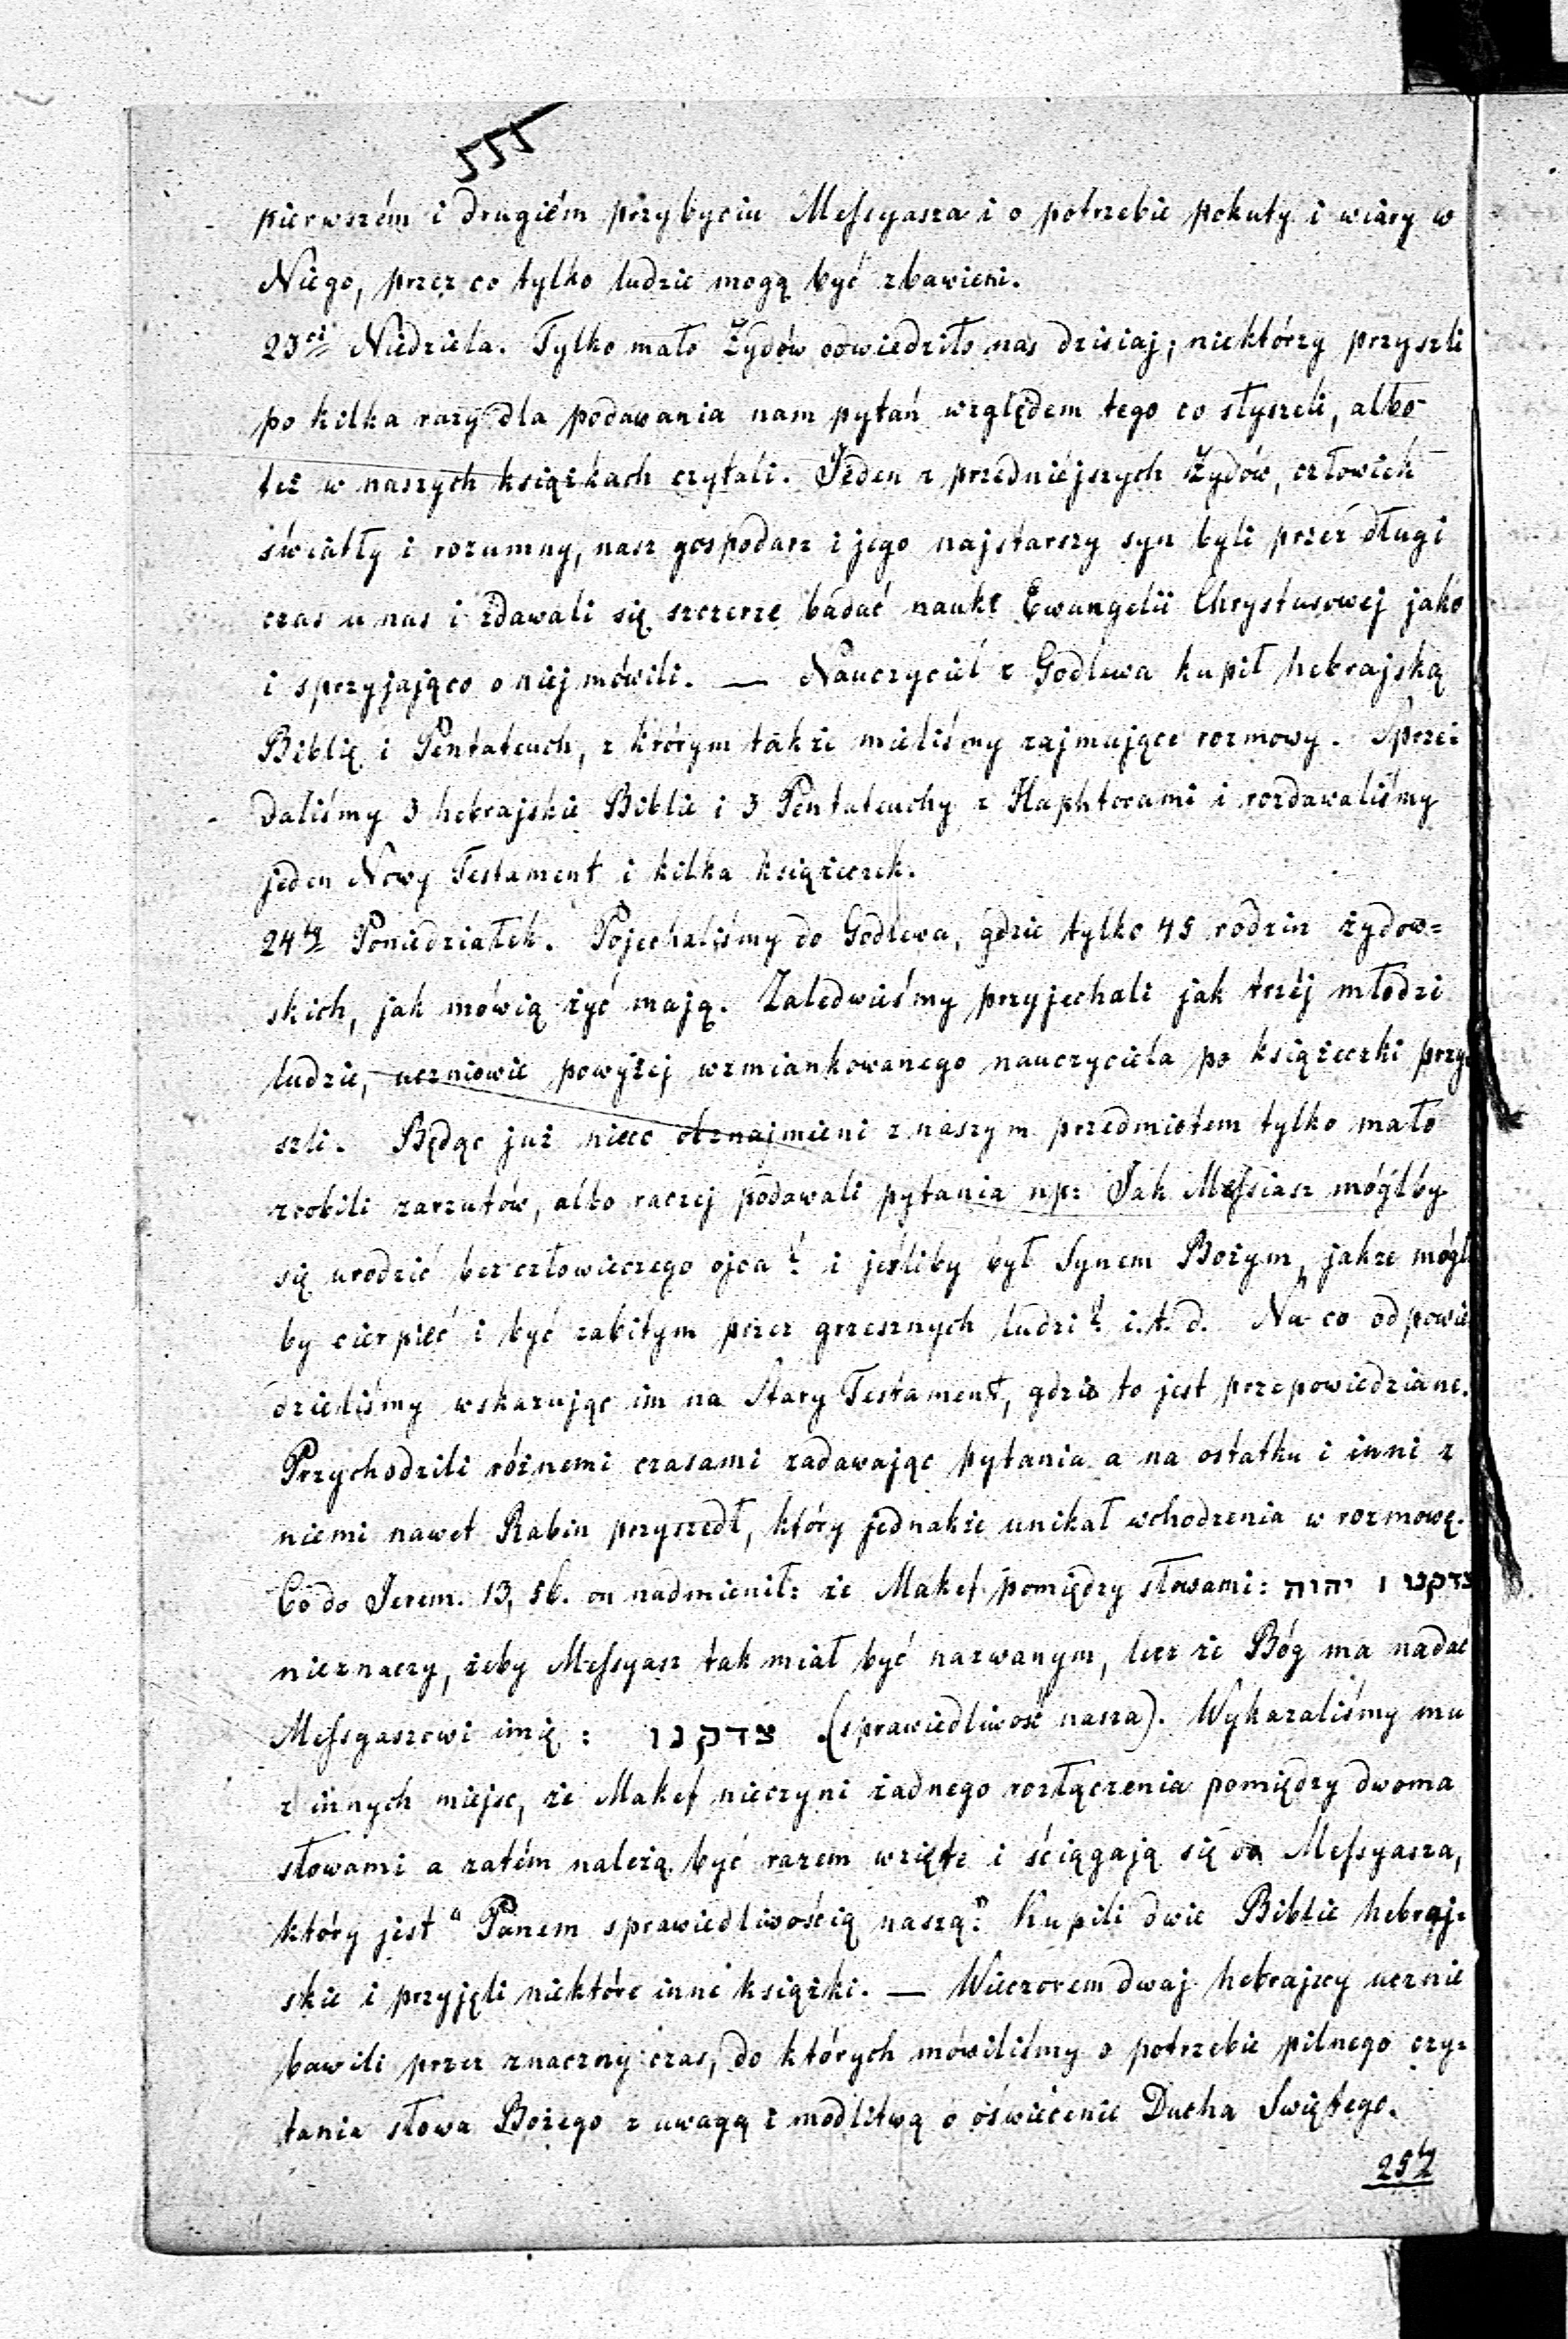 555
pierwszém i drugiém przybyciu Messyasza i o potrzebie pokuty i wiary w
Niego, przez co tylko ludzie mogą być zbawieni.
23ci Niedziela. Tylko mało Żydów odwiedziło nas dzisiaj; niektórzy przyszli
po kilka razy dla podawania nam pytań względem tego co słyszeli, albo
też w naszych książkach czytali. Jeden z przedniejszych Żydów, człowiek
światły i rozumny, nasz gospodarz i jego najstarszy syn byli przez długi
czas u nas i zdawali się szczerze badać naukę Ewangelii Chrystusowej jako
i sprzyjająco o niej mówili. — Nauczyciel z Godlewa kupił hebrajską
Biblię i Pentateuch, z którym także mieliśmy zajmujące rozmowy. Sprze=
daliśmy 3 hebrajskie Biblie i 3 Pentateuchy z Haphtorami i rozdawaliśmy
jeden Nowy Testament i kilka książeczek.
24ty Poniedziałek. Pojechaliśmy do Godlewa, gdzie tylko 45 rodzin żydow=
skich, jak mówią żyć mają. Zaledwieśmy przyjechali jak trzéj młodzi
ludzie, uczniowie powyżej wzmiankowanego nauczyciela po książeczki przy
szli. Będąc już nieco obznajmieni z naszym przedmiotem tylko mało
zrobili zarzutów, albo raczej podawali pytania np: Jak Messiasz mógłby
się urodzić bez człowieczego ojca? i jeśliby był Synem Bożym, jakże mógł
by cierpieć i być zabitym przez grzesznych ludzi? i.t.d. Na co odpowie
dzieliśmy wskazując im na Stary Testament, gdzie to jest przepowiedziane.
Przychodzili różnemi czasami zadawając pytania a na ostatku i inni z
niemi nawet Rabin przyszedł, który jednakże unikał wchodzenia w rozmowę.
Co do Jerem. 13, 56. on nadmienił: że Makef pomiędzy słowami: יהוה צדקנו
nieznaczy, żeby Messyasz tak miał być nazwanym, lecz że Bóg ma nadać
Messyaszowi imię: צדקנו (sprawiedliwość nasza). Wykazaliśmy mu
z innych miejsc, że Makef nieczyni żadnego rozłączenia pomiędzy dwoma
słowami a zatém należą być razem wzięte i ściągają się do Messyasza,
który jest "Panem sprawiedliwością naszą." Kupili dwie Biblie hebraj=
skie i przyjęli niektóre inne książki. — Wieczorem dwaj hebrajscy ucznie
bawili przez znaczny czas, do których mówiliśmy o potrzebie pilnego czy=
tania słowa Bożego z uwagą i modlitwą o oświecenie Ducha Świętego.
25ty